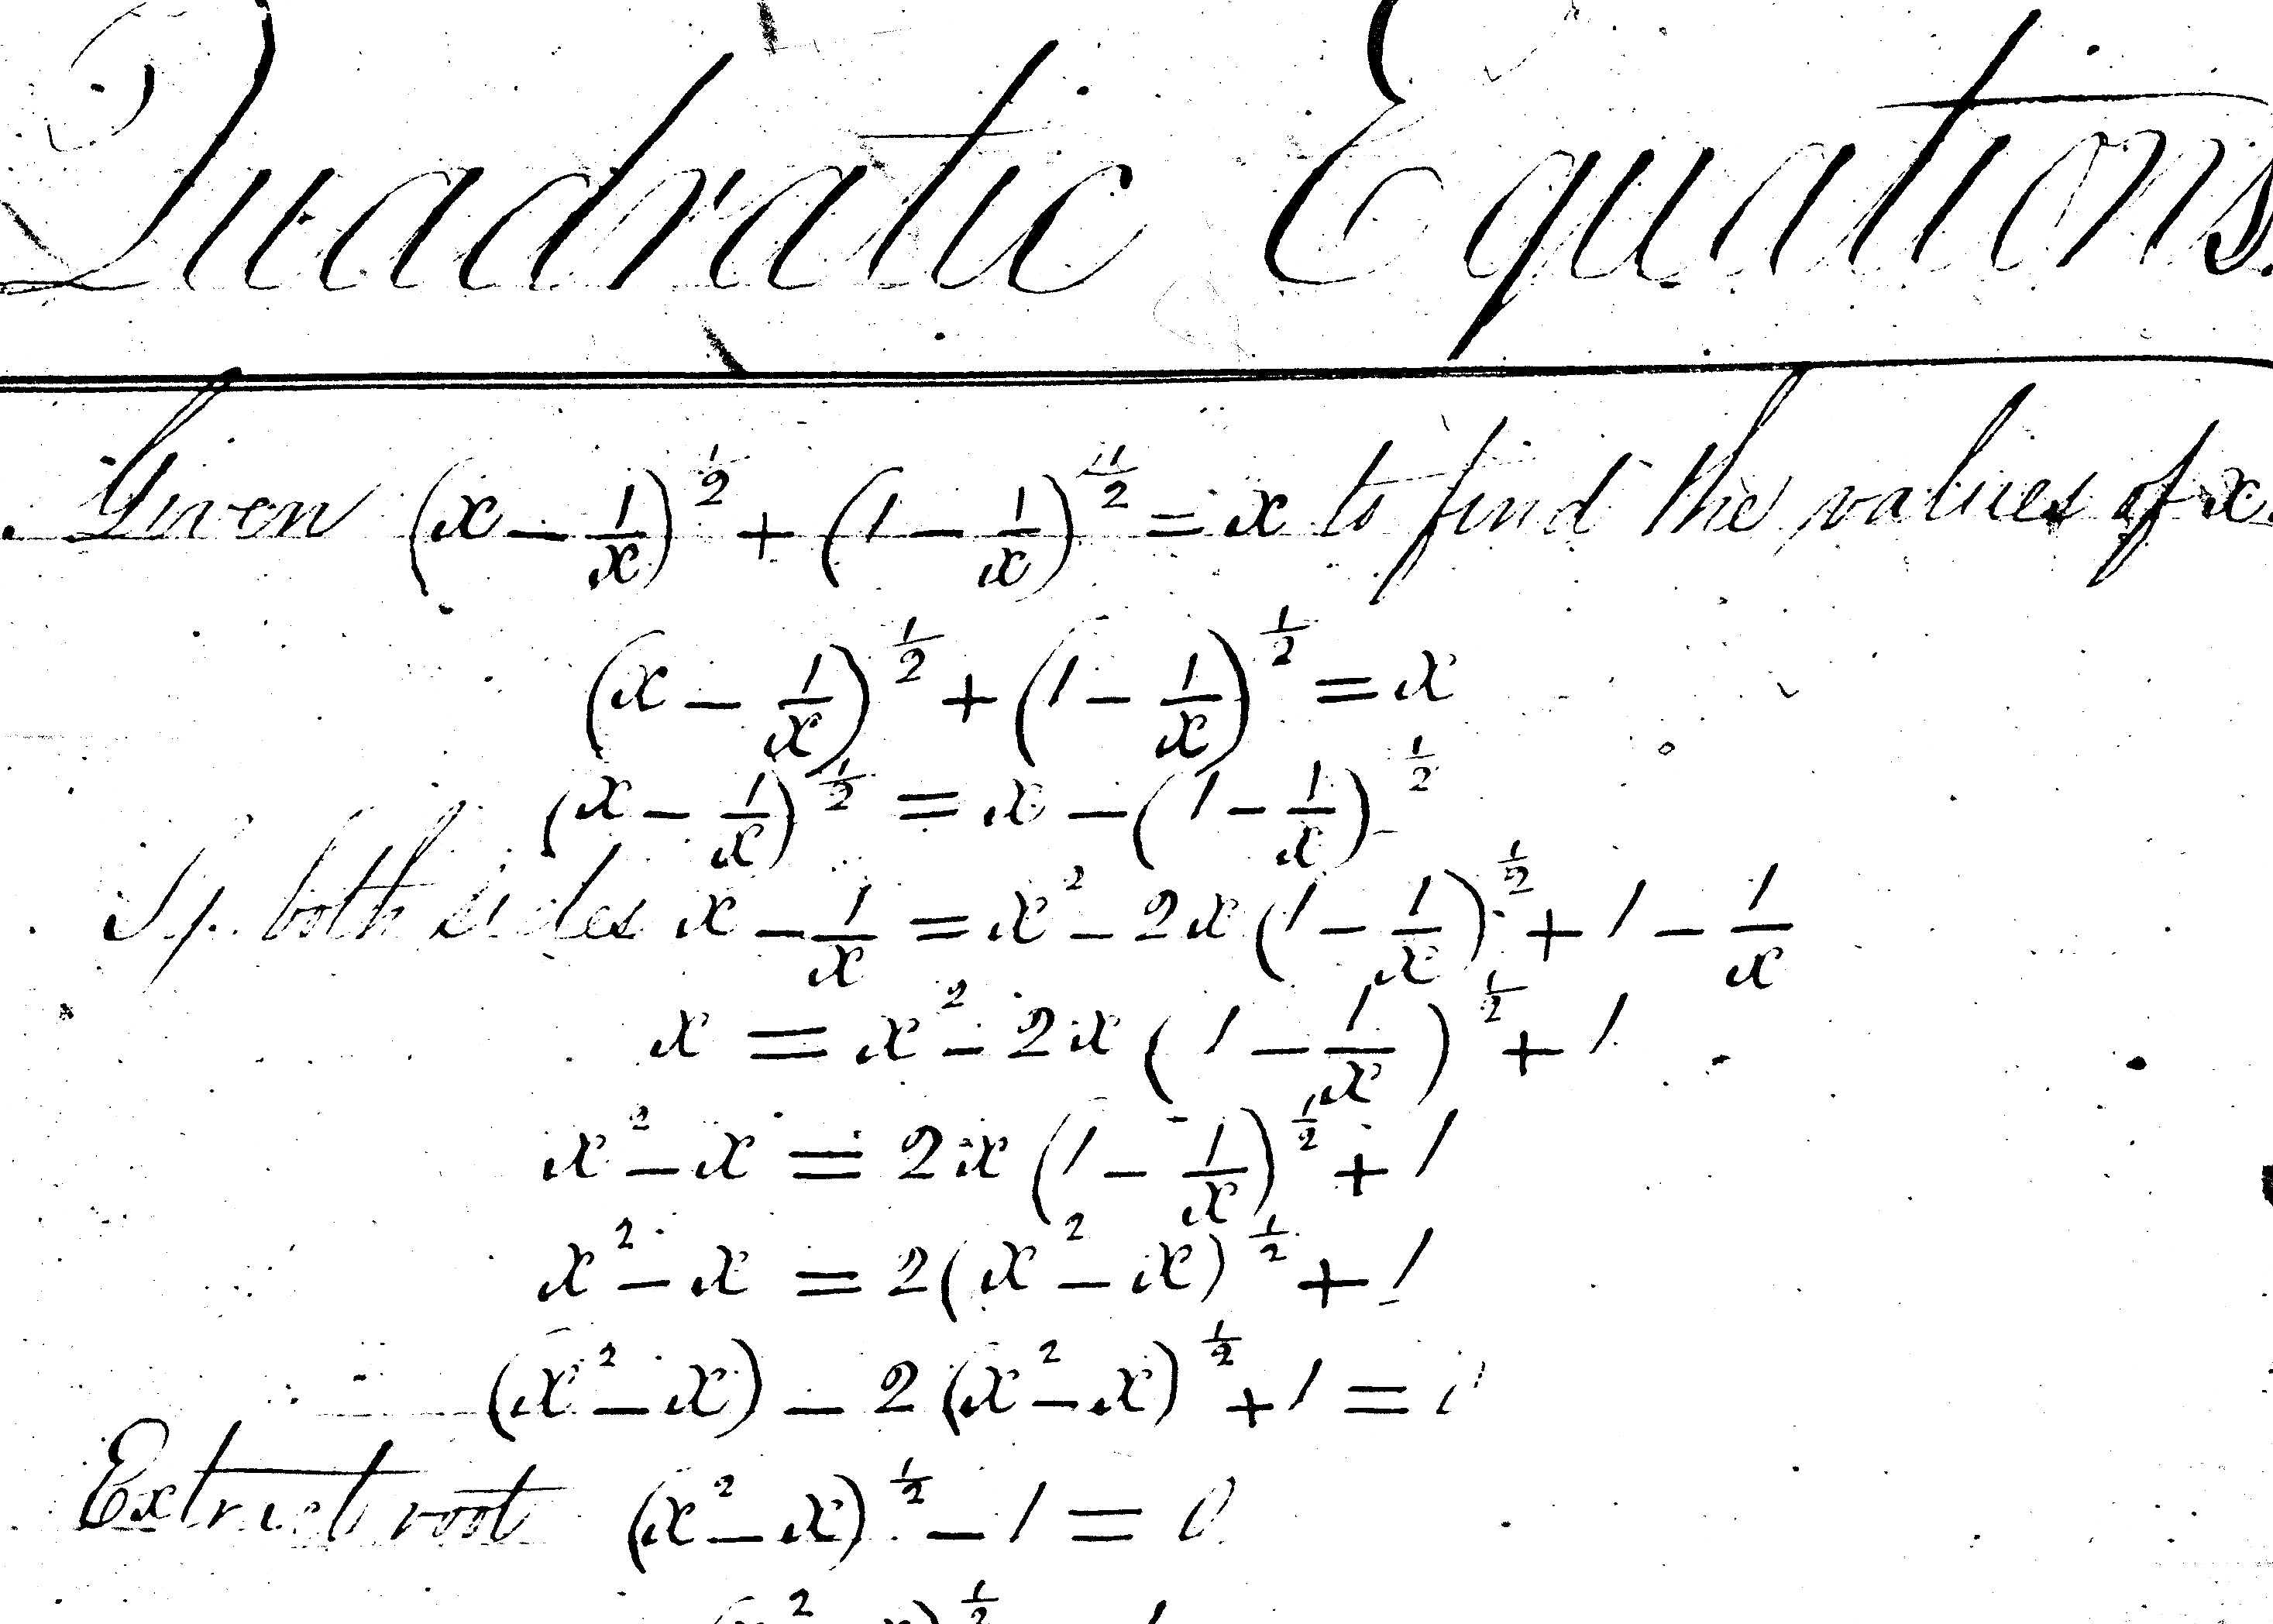 Quadratic Equations.
Given (x - 1/x)^½ + (1 - 1/x)^½ = x to find the values of x.
(x - 1/x)^½ + (1 - 1/x)^½ = x
(x - 1/x)^½ = x - (1 - 1/x)^½
Sq. both sides x - 1/x = x² - 2x(1 - 1/x)^½ + 1 - 1/x
x = x² - 2x(1 - 1/x)^½ + 1
x² - x = 2x(1 - 1/x)^½ + 1
x² - x = 2(x² - x)^½ + 1
(x² - x) - 2(x² - x)^½ + 1 =
Extract root (x² - x)^½ - 1 = 0